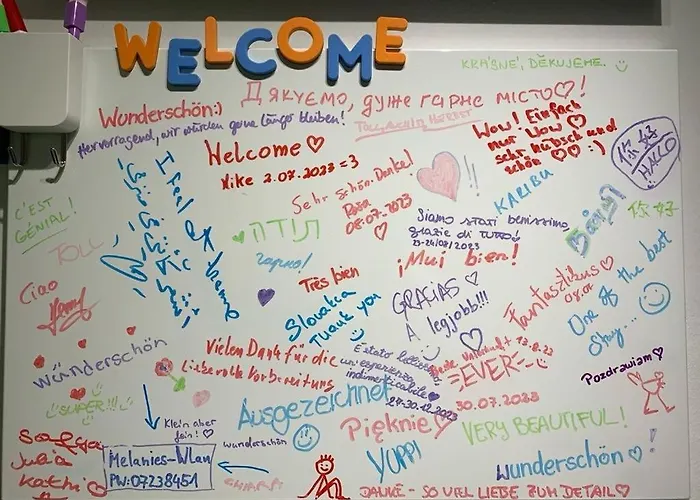 WELCOME
KRÁSNÉ, DĚKUJEME.
Дякуємо, дуже гарне місто♡!
Wunderschön:)
Hervorragend, wir würden gerne länger bleiben!
TOLL, AUCH IM HERBST
Wow! Einfach
nur Wow ♡
sehr hübsch und
schön ♡♡ :)
你好
HALLO
Welcome ♡
Nike 2.07.2023 =3
I feel at home
Sehr schön. Danke!
Rosa
08.07.2023
KARIBU
Siamo stati benissimo,
grazie di tutto!
23-24/08/2023
你好
C'EST
GÉNIAL!
TOLL
תודה
гарно!
¡Mui bien!
Très bien
Ciao
Slovakia
Thank you
GRACIAS ♡
A legjobb!!!
Fantasztikus♡
One of the best
Stay...
wunderschön
Vielen Dank für die
Liebevolle Vorbereitung
È stato bellissimo,
un'esperienza
indimenticabile
24-30.12.2023
Beste Unterkunft 13.8.23
=EVER=
30.07.2023
Pozdrawiam♡
SUPER!!!
Klein aber
fein! ♡
Ausgezeichnet
wunderschön
Pięknie♡
VERY BEAUTIFUL!
YUPPI
Julia
Kathi
Melanies-Wlan
PW:07238451
wunderschön♡!
DANKE - SO VIEL LIEBE ZUM DETAIL♡